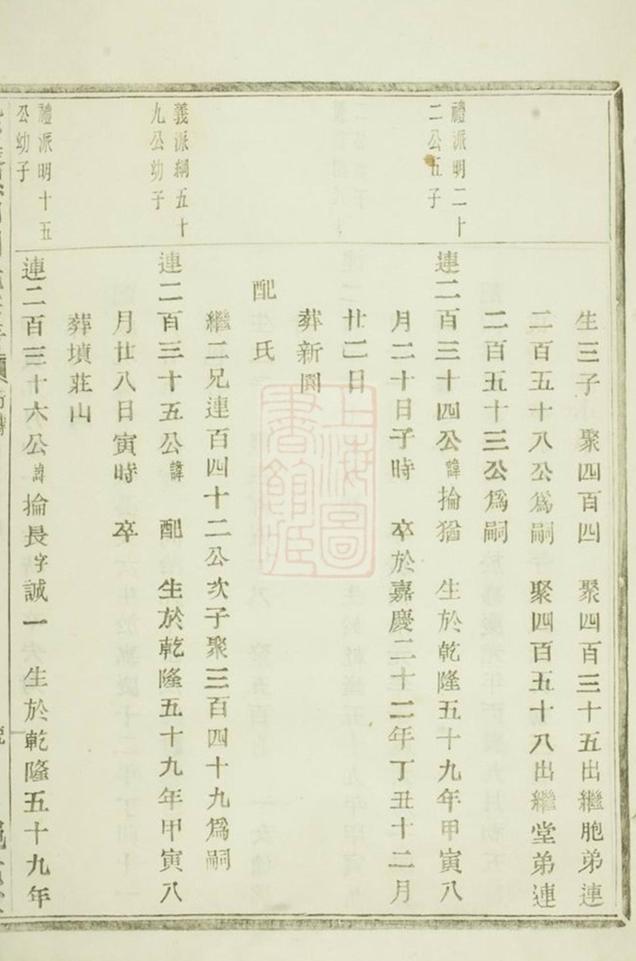 禮派明二十
二公五子
義派綱五十
九公幼子
禮派明十五
公幼子
生三子　聚四百四　聚四百三十五出繼胞弟連
二百五十八公爲嗣　聚四百五十八出繼堂弟連
二百五十三公爲嗣
連二百三十四公諱掄猶　生於乾隆五十九年甲寅八
月二十日子時　卒於嘉慶二十二年丁丑十二月
廿二日
葬新園
配　氏
繼二兄連百四十二公次子聚三百四十九爲嗣
連二百三十五公諱　配　生於乾隆五十九年甲寅八
月廿八日寅時　卒
葬墳莊山
連二百三十六公諱掄長字誠一　生於乾隆五十九年
上海圖
書館藏